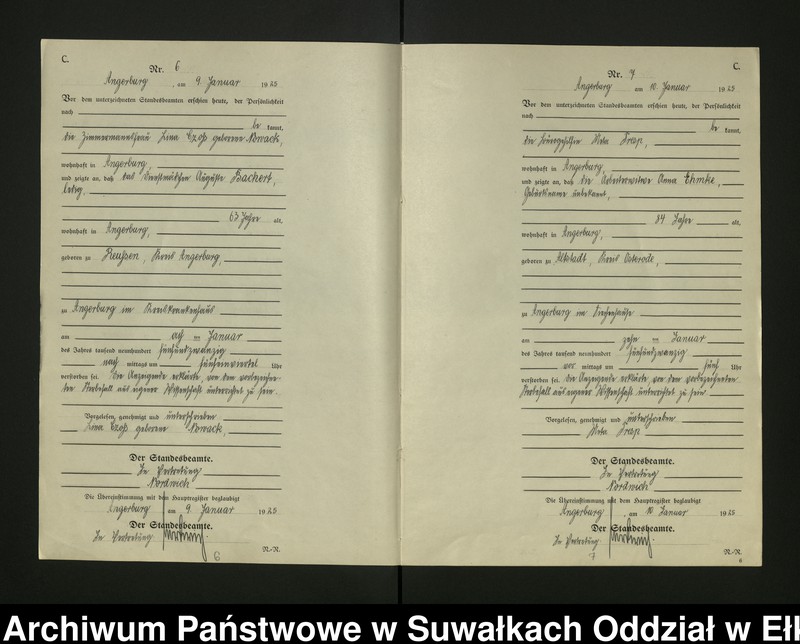 C.
Nr. 6
Angerburg, am 9. Januar 1925
Vor dem unterzeichneten Standesbeamten erschien heute, der Persönlichkeit
nach
be kannt,
die Zimmermannsfrau Lina Czoß geborene Nowack,
wohnhaft in Angerburg,
und zeigte an, daß das Dienstmädchen Auguste Backert,
ledig,
63 Jahre alt,
wohnhaft in Angerburg,
geboren zu Reußen, Kreis Angerburg,
zu Angerburg im Kreiskrankenhaus
am acht ten Januar
des Jahres tausend neunhundert fünfundzwanzig
nach mittags um Uhr
verstorben sei. Die Anzeigende erklärte, von dem vorbezeichne-
ten Sterbefall aus eigener Wissenschaft unterrichtet zu sein.
Vorgelesen, genehmigt und unterschrieben
Lina Czoß geborene Nowack,
Der Standesbeamte.
In Vertretung
Nordwich
Die Übereinstimmung mit dem Hauptregister beglaubigt
Angerburg, am 9. Januar 1925
Der Standesbeamte.
In Vertretung
6
N.-R.
C.
Nr. 7
Angerburg am 10. Januar 1925
Vor dem unterzeichneten Standesbeamten erschien heute, der Persönlichkeit
nach
be kannt,
die Meta Prap,
wohnhaft in Angerburg,
und zeigte an, daß die Arbeiterwitwe Anna Ehmke,
Geburtsname unbekannt,
84 Jahre alt,
wohnhaft in Angerburg,
geboren zu Altstadt, Kreis Osterode,
zu Angerburg im Siechenhause
am zehn ten Januar
des Jahres tausend neunhundert fünfundzwanzig
vor mittags um fünf Uhr
verstorben sei. Die Anzeigende erklärte, von dem vorbezeichneten
Sterbefall aus eigener Wissenschaft unterrichtet zu sein.
Vorgelesen, genehmigt und unterschrieben
Meta Prap
Der Standesbeamte.
In Vertretung
Nordwich
Die Übereinstimmung mit dem Hauptregister beglaubigt
Angerburg, am 10. Januar 1925
Der Standesbeamte.
In Vertretung
7
N.-R.
6
Archiwum Państwowe w Suwałkach Oddział w Eł